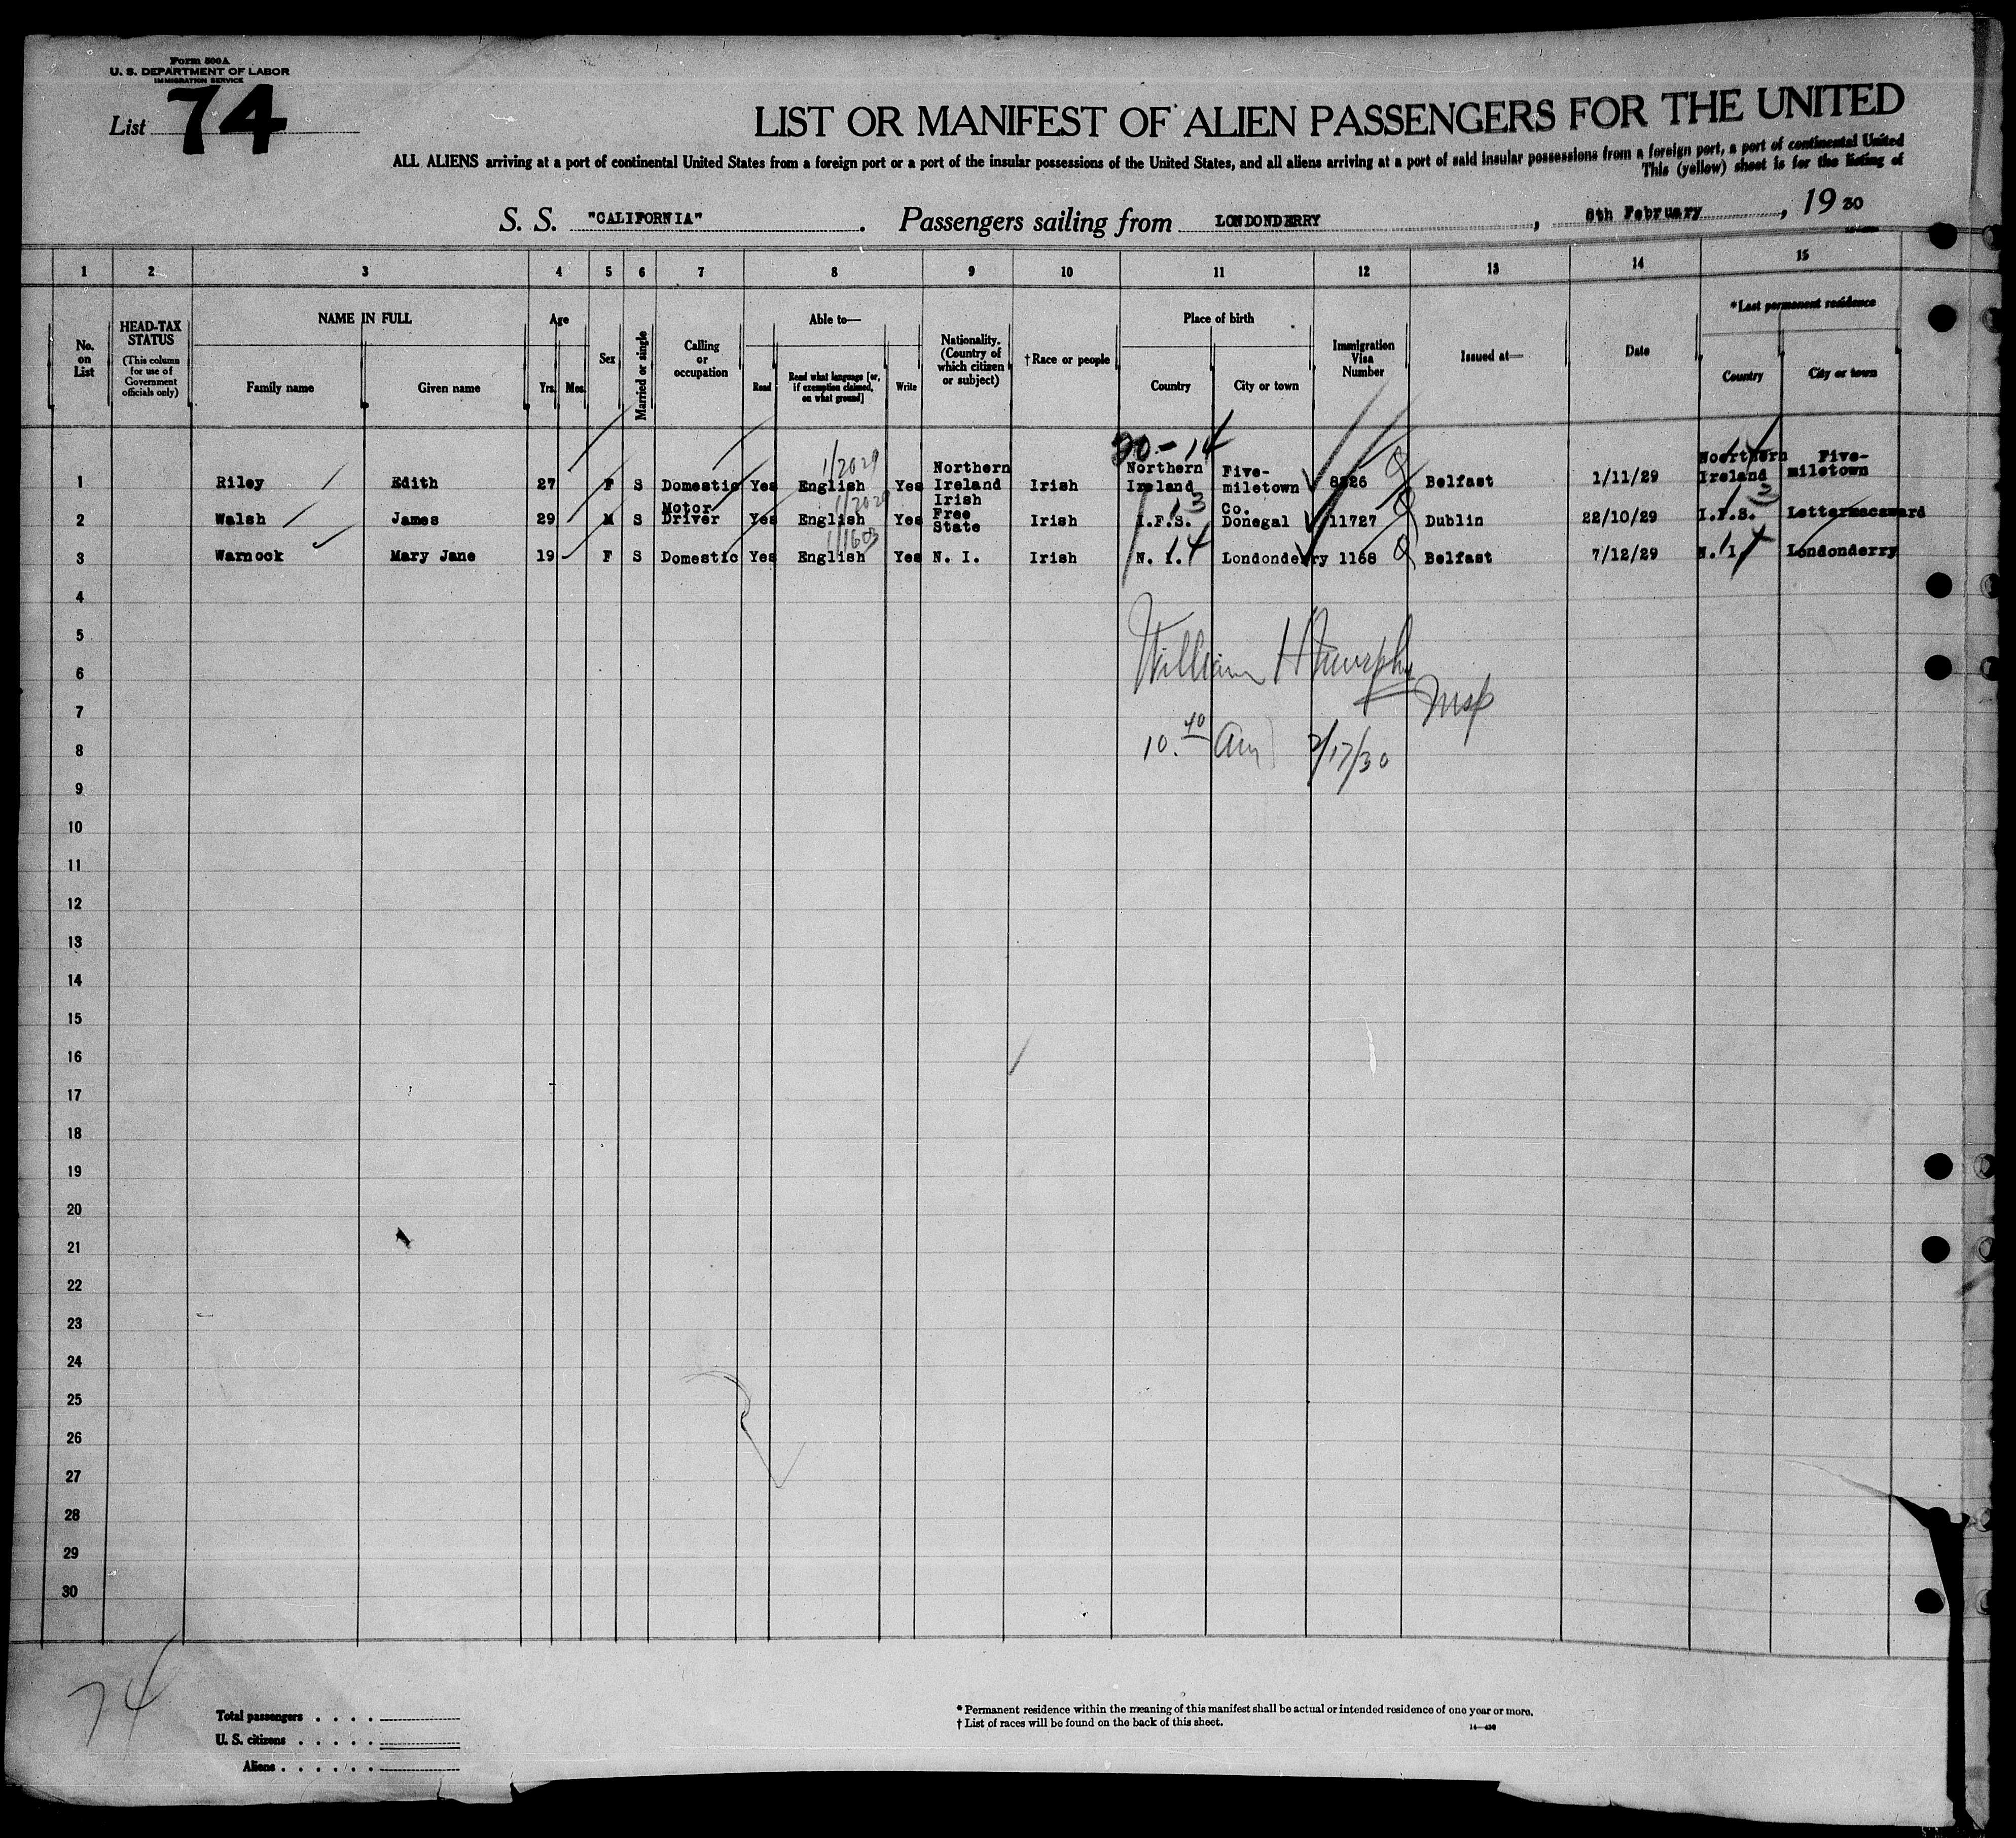 Form 500A
U. S. DEPARTMENT OF LABOR
IMMIGRATION SERVICE
List 74
LIST OR MANIFEST OF ALIEN PASSENGERS FOR THE UNITED
ALL ALIENS arriving at a port of continental United States from a foreign port or a port of the insular possessions of the United States, and all aliens arriving at a port of said insular possessions from a foreign port, a port of continental United
This (yellow) sheet is for the listing of
S. S. "CALIFORNIA". Passengers sailing from LONDONDERRY, 8th February, 19 30
1 2 3 4 5 6 7 8 9 10 11 12 13 14 15
No. on List
HEAD-TAX STATUS
(This column for use of Government officials only)
NAME IN FULL
Family name
Given name
Age
Yrs. Mos.
Sex
Married or single
Calling or occupation
Able to—
Read
Read what language [or, if exemption claimed, on what ground]
Write
Nationality. (Country of which citizen or subject)
†Race or people
Place of birth
Country
City or town
Immigration Visa Number
Issued at—
Date
*Last permanent residence
Country
City or town
30-14
1 Riley Edith 27 F S Domestic Yes English 1/2029 Yes Northern Ireland Irish Northern Ireland Five-miletown 8826 Belfast 1/11/29 Noerthern Ireland Five-miletown
2 Walsh James 29 M S Motor Driver Yes English 1/2029 Yes Irish Free State Irish I.F.S. 3 Co. Donegal 11727 Dublin 22/10/29 I.F.S. 3 Lettermacaward
3 Warnock Mary Jane 19 F S Domestic Yes English 1/1603 Yes N. I. Irish N. I. 14 Londonderry 1168 Belfast 7/12/29 N. I. 14 Londonderry
4
5
William H Murphy
6
Insp
7
8
10.40 Am 2/17/30
9
10
11
12
13
14
15
16
17
18
19
20
21
22
23
24
25
26
27
28
29
30
74
Total passengers . . . .
U. S. citizens . . . . .
Aliens . . . . . .
* Permanent residence within the meaning of this manifest shall be actual or intended residence of one year or more.
† List of races will be found on the back of this sheet.
14—430